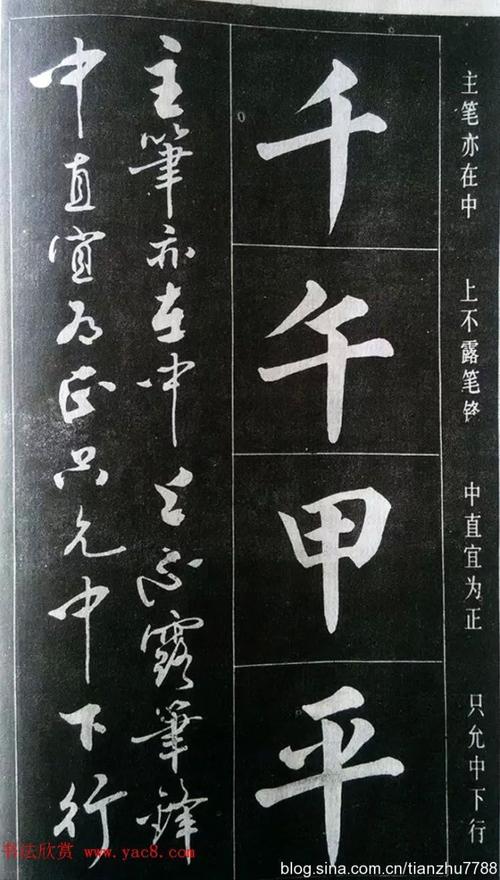 主笔亦在中 上不露笔锋 中直宜为正 只允中下行
千午甲平
主筆亦在中上不露筆鋒
中直宜为正只允中下行
书法欣赏 www.yac8.com
blog.sina.com.cn/tianzhu7788